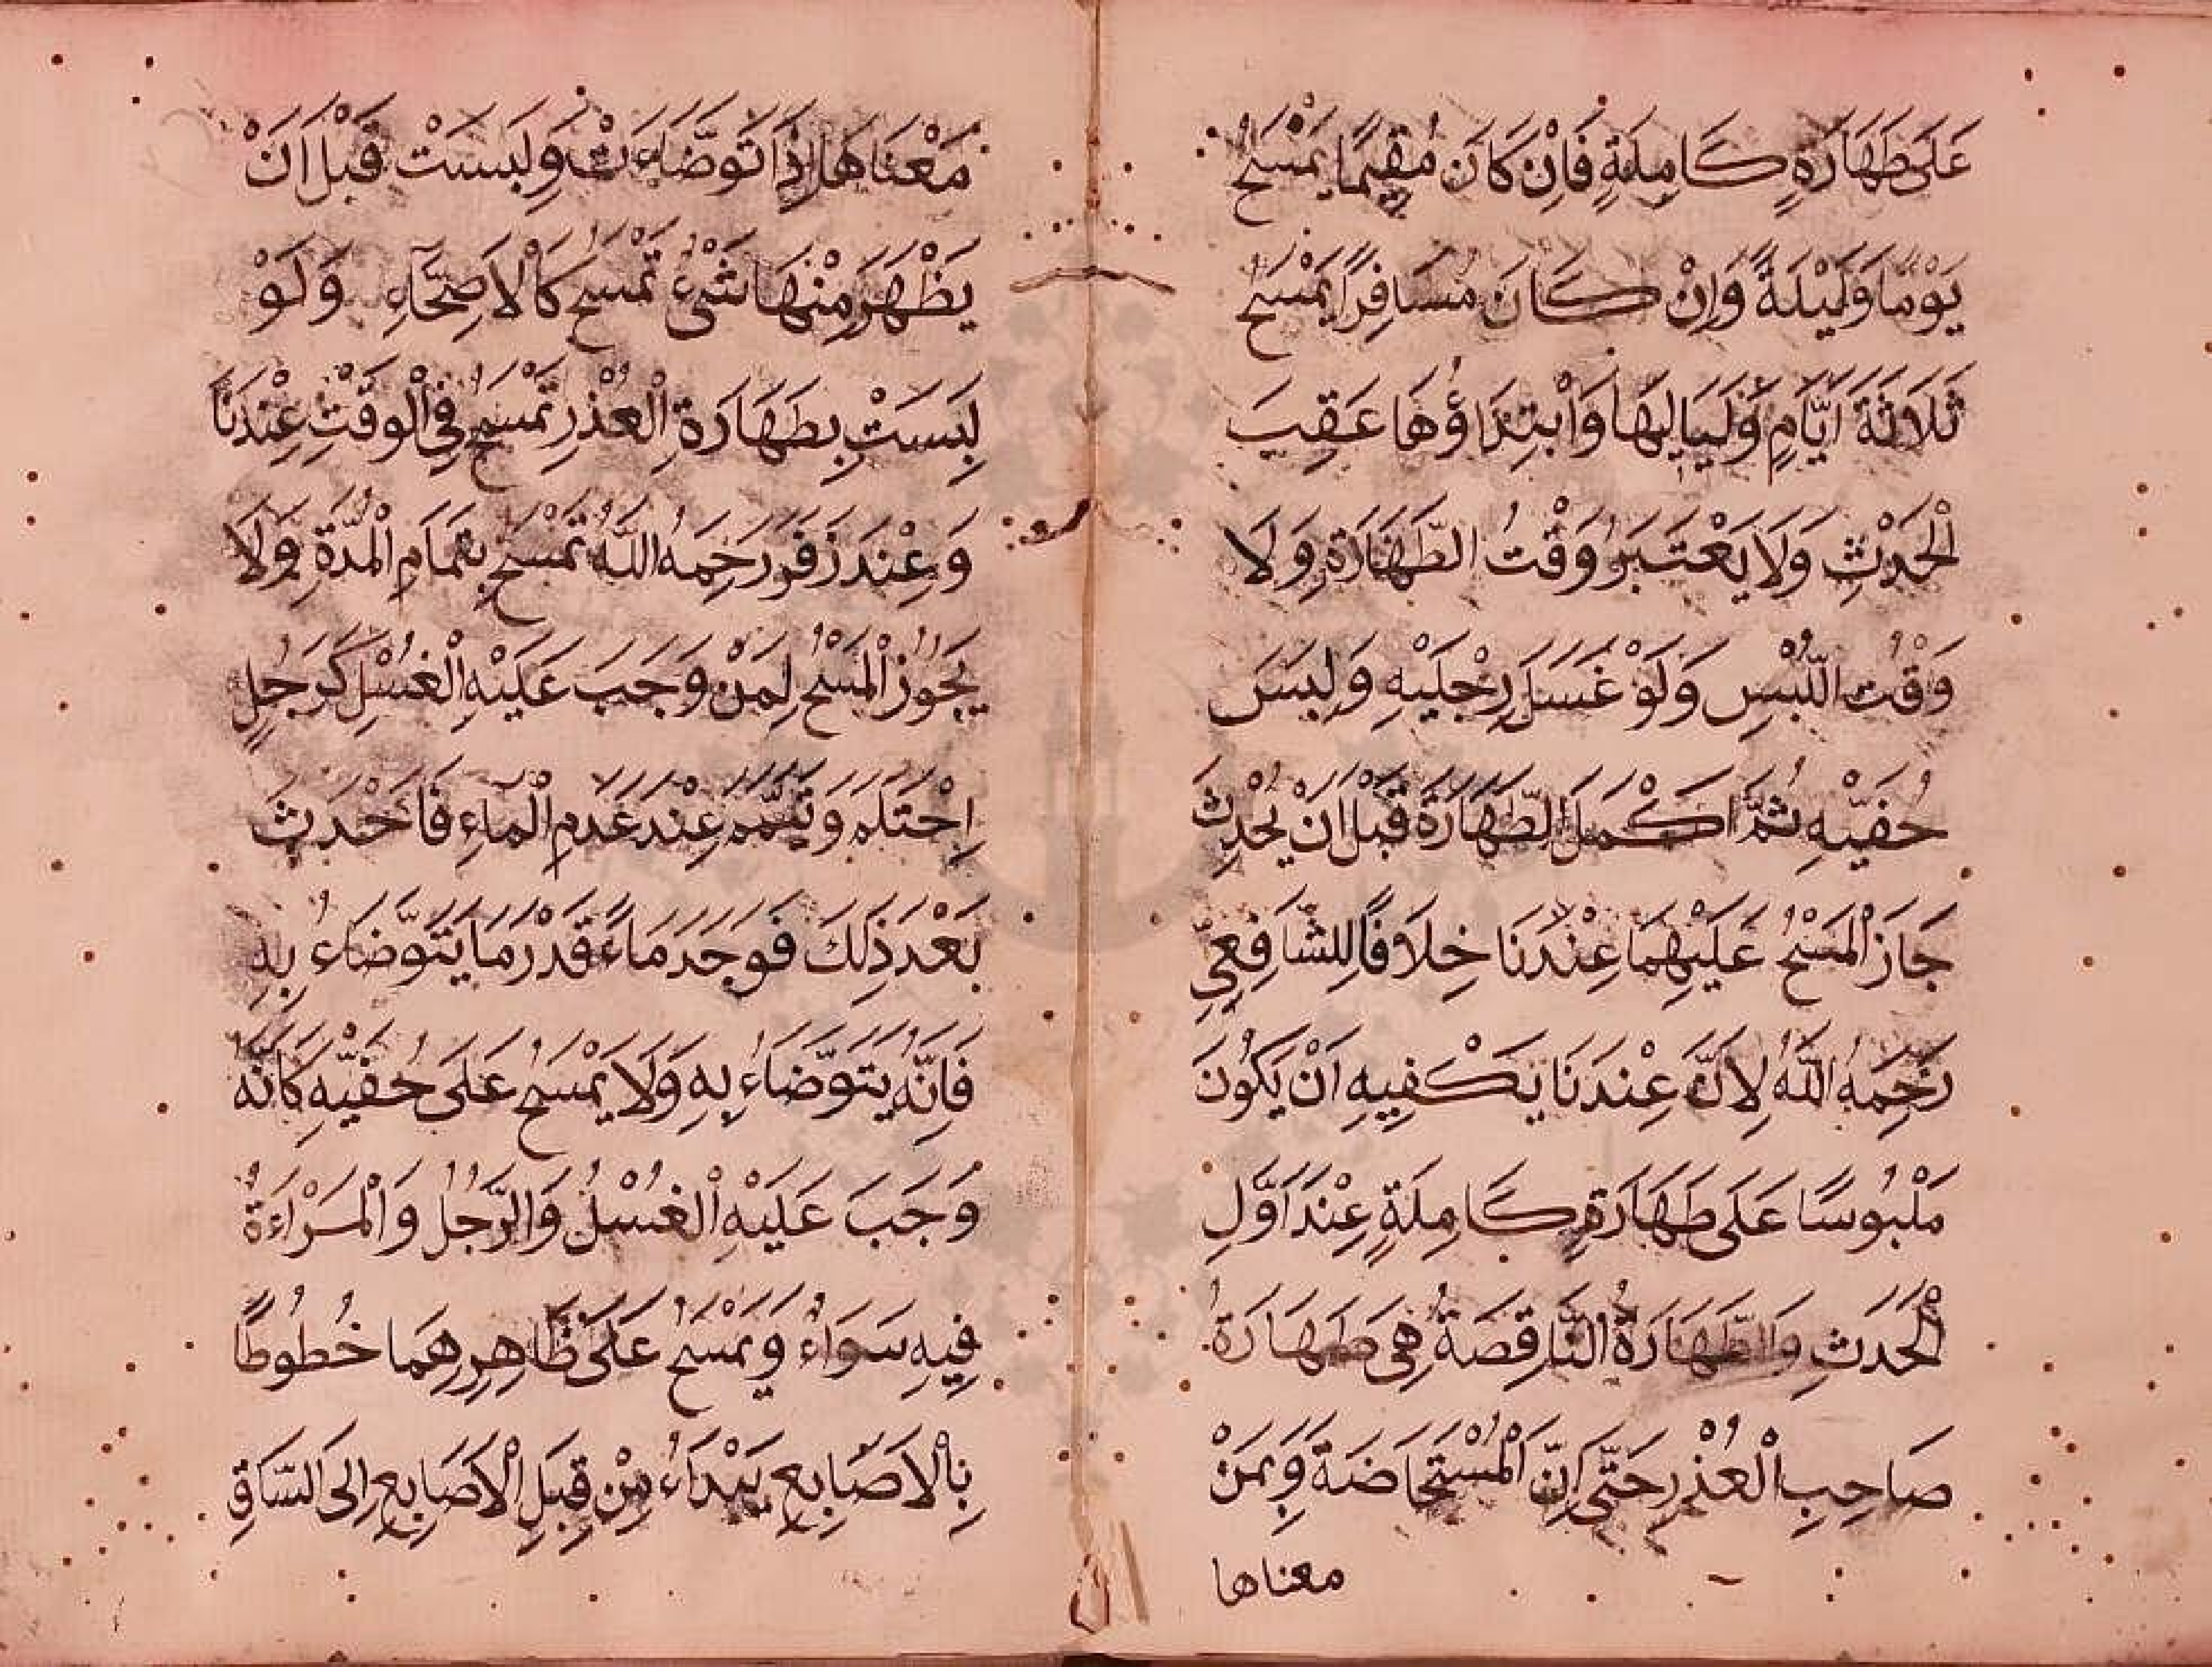 عَلَى طَهَارَةٍ كَامِلَةٍ فَاِنْ كَانَ مُقِيمًا يَمْسَحُ
يَوْمًا وَلَيْلَةً وَاِنْ كَانَ مُسَافِرًا يَمْسَحُ
ثَلَاثَةَ اَيَّامٍ وَلَيَالِيهَا وَابْتِدَاؤُهَا عَقِيبَ
الْحَدَثِ وَلَا يَعْتَبَرُ وَقْتُ الطَّهَارَةِ وَلَا
وَقْتُ اللُّبْسِ وَلَوْ غَسَلَ رِجْلَيْهِ وَلِبَسَ
خُفَيْهِ ثُمَّ اَكْمَلَ الطَّهَارَةَ قَبْلَ اَنْ يُحْدِثَ
جَازَ الْمَسْحُ عَلَيْهِمَا عِنْدَنَا خِلَافًا لِلشَّافِعِيِّ
رَحِمَهُ اللّٰهُ لِاَنَّ عِنْدَنَا يَكْفِيهِ اَنْ يَكُونَ
مَلْبُوسًا عَلَى طَهَارَةٍ كَامِلَةٍ عِنْدَ اَوَّلِ
الْحَدَثِ وَالطَّهَارَةُ النَّاقِصَةُ هِىَ طَهَارَةُ
صَاحِبِ الْعُذْرِ حَتَّى اِنَّ الْمُسْتَحَاضَةَ وَبِمَنْ
معناها
مَعْنَاهَا اِذَا تَوَضَّاءَتْ وَلِبَسَتْ قَبْلَ اَنْ
يَظْهَرَ مِنْهَا شَىْءٌ تَمْسَحُ كَالْاَصِحَّاءِ وَلَوْ
لَبِسَتْ بِطَهَارَةِ الْعُذْرِ تَمْسَحُ فِى الْوَقْتِ عِنْدَنَا
وَعِنْدَ زَفَرَ رَحِمَهُ اللّٰهُ تَمْسَحُ بِتَمَامِ الْمُدَّةِ وَلَا
يَجُوزُ الْمَسْحُ لِمَنْ وَجَبَ عَلَيْهِ الْغُسْلُ كَرَجُلٍ
اِحْتَلَمَ وَتَيَمَّمَ عِنْدَ عَدَمِ الْمَاءِ فَاَحْدَثَ
بَعْدَ ذٰلِكَ فَوَجَدَ مَاءً قَدْرَ مَا يَتَوَضَّاءُ بِهِ
فَاِنَّهُ يَتَوَضَّاءُ بِهِ وَلَا يَمْسَحُ عَلَى خُفَّيْهِ كَانَّهُ
وَجَبَ عَلَيْهِ الْغُسْلُ وَالرَّجُلُ وَالْمَرْاءَةُ
فِيهِ سَوَاءٌ وَيَمْسَحُ عَلَى ظَاهِرِهِمَا خُطُوطًا
بِالْاَصَابِعِ يَبْدَاءُ مِنْ قِبَلِ الْاَصَابِعِ اِلَى السَّاقِ